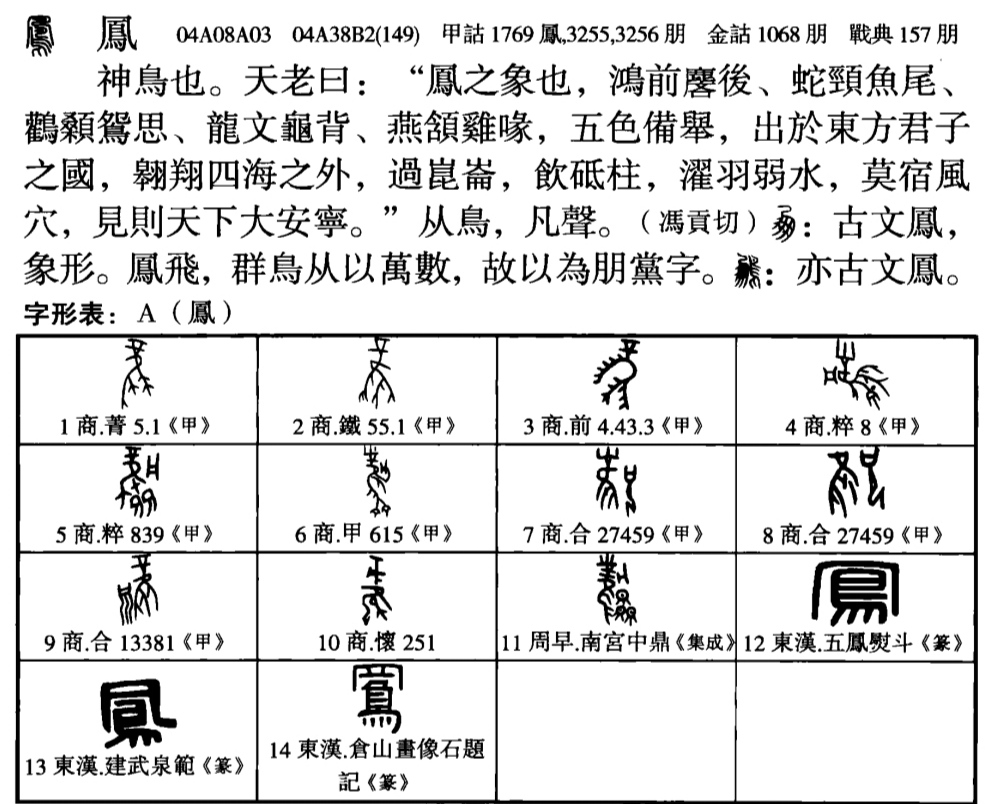 鳳 04A08A03 04A38B2(149) 甲詁1769鳳,3255,3256朋 金詁1068朋 戰典157朋
神鳥也。天老曰：“鳳之象也，鴻前麐後、蛇頸魚尾、
鸛顙鴛思、龍文龜背、燕頷雞喙，五色備舉，出於東方君子
之國，翱翔四海之外，過崑崙，飲砥柱，濯羽弱水，莫宿風
穴，見則天下大安寧。”从鳥，凡聲。（馮貢切）：古文鳳，
象形。鳳飛，群鳥从以萬數，故以為朋黨字。：亦古文鳳。
字形表：A（鳳）
1商.菁5.1《甲》 2商.鐵55.1《甲》 3商.前4.43.3《甲》 4商.粹8《甲》
5商.粹839《甲》 6商.甲615《甲》 7商.合27459《甲》 8商.合27459《甲》
9商.合13381《甲》 10商.懷251 11周早.南宮中鼎《集成》 12東漢.五鳳熨斗《篆》
13東漢.建武泉範《篆》 14東漢.倉山畫像石題
記《篆》